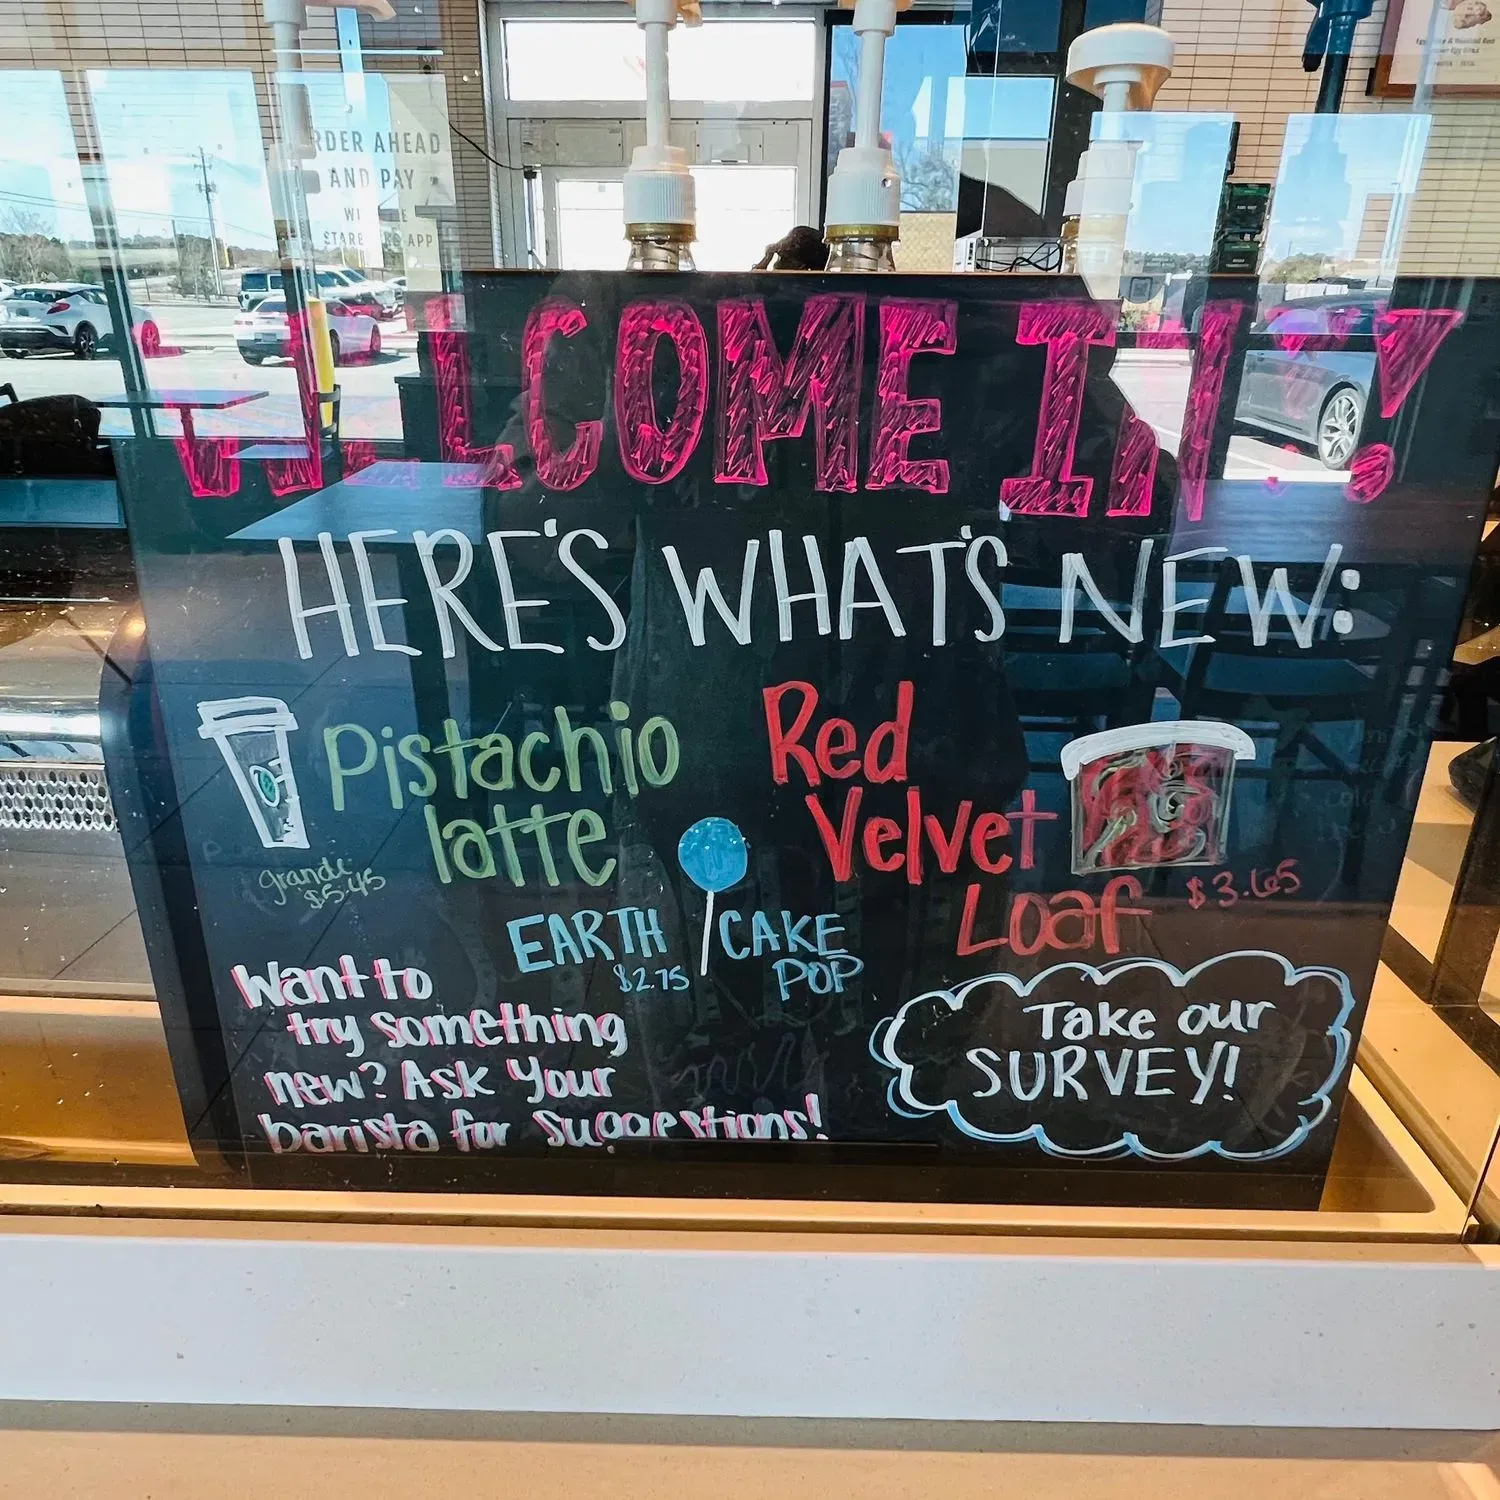 RDER AHEAD
AND PAY
APP
WELCOME IN!
HERE'S WHAT'S NEW:
Pistachio
latte
grande:
$5.45
Red
Velvet
Loaf
$3.65
EARTH CAKE
POP
$2.75
Want to
try something
new? Ask your
barista for suggestions!
Take our
SURVEY!